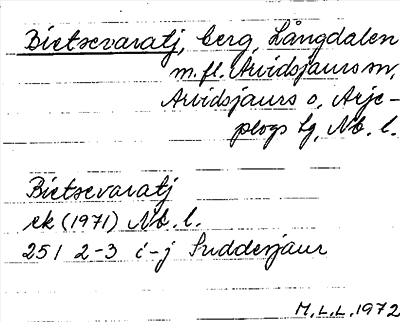 Bietsevaratj, berg, Långdalen
m. fl. Arvidsjaurs sn,
Arvidsjaurs o, Arje-
plogs lj, Nb. l.
Bietsevaratj
ek (1971) Nb. l.
25 I 2-3 i-j Suddesjaur
M.L.L. 1972